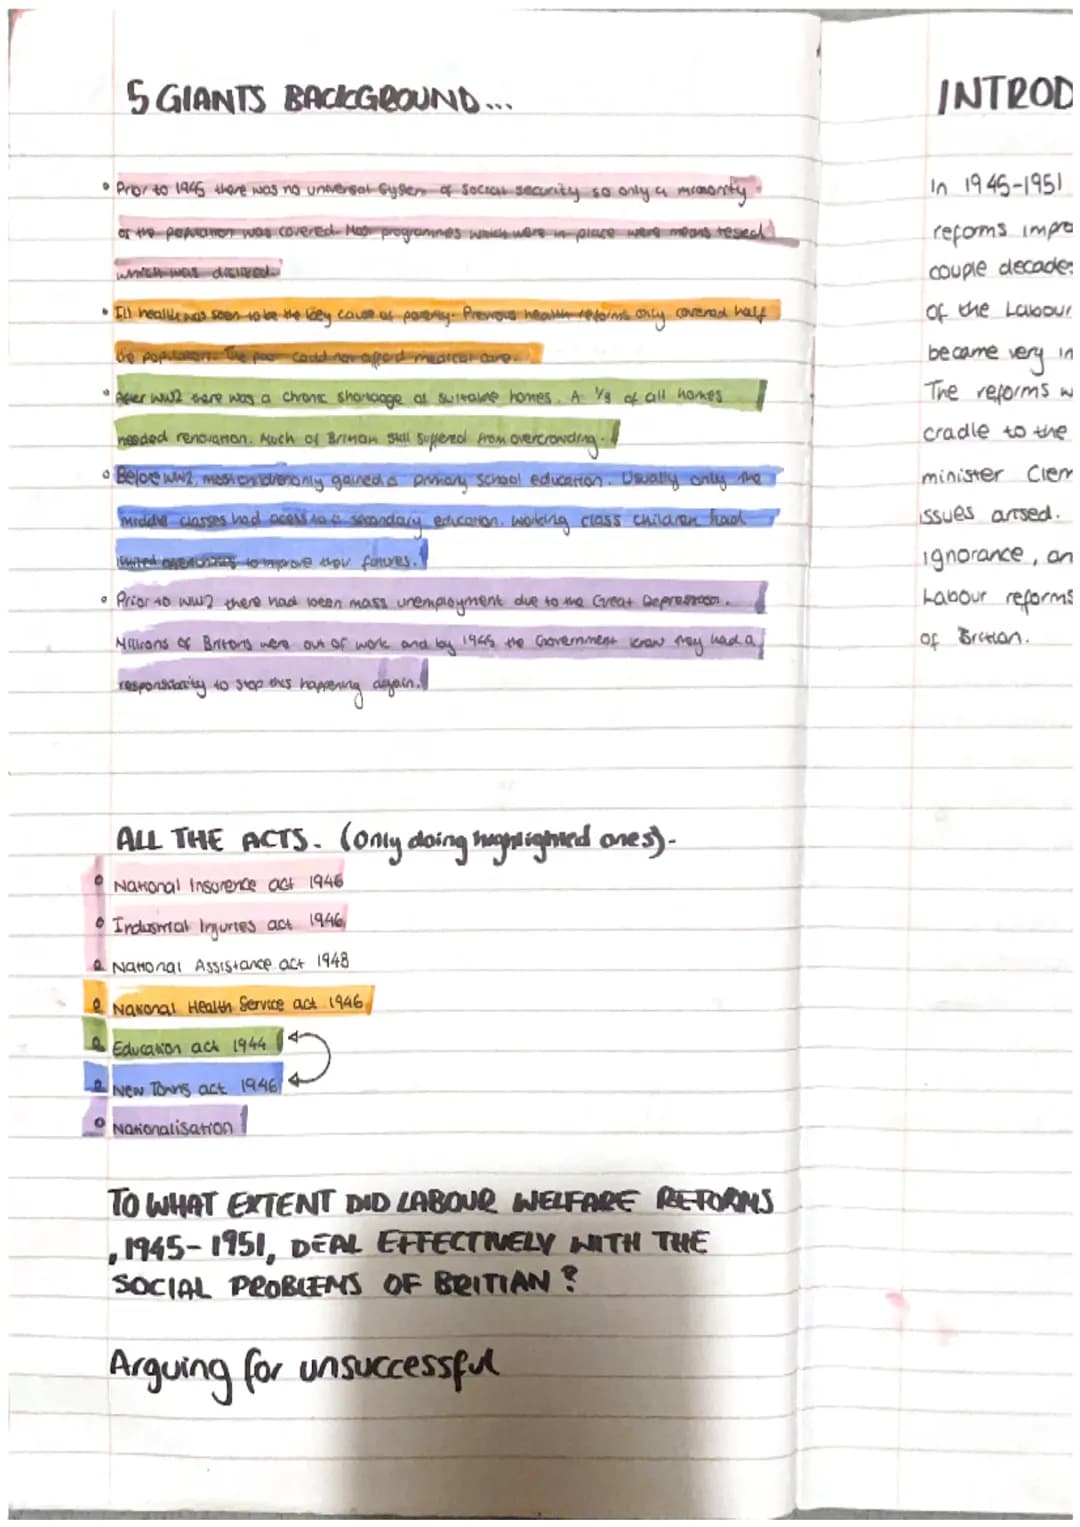 5 GIANTS BACKGROUND...
Prior to 1945 there was no universal system of social security so only a minority
of the population was covered. Most programmes which were in place were means tested
which was disliked.
Ill health was seen to be the key cause of poverty. Previous health reforms only covered half
the population. The poor could not afford medical care.
After WW2 there was a chronic shortage of suitable homes. A 1/3 of all homes
needed renovation. Much of Britain still suffered from overcrowding.
Before WW2, most children only gained a primary school education. Usually only the
middle classes had acess to a secondary education. Working class children had
limited to improve their futures.
Prior to WW2 there had been mass unemployment due to the Great Depression.
Millions of Britons were out of work and by 1945 the Government knew they had a
responsibility to stop this happening again.
ALL THE ACTS. (Only doing highlighted ones).
National Insurence act 1946
Industrial Injuries act 1946
National Assistance act 1948
National Health Service act 1946
Education act 1944
New Towns act 1946
Nationalisation
TO WHAT EXTENT DID LABOUR WELFARE REFORMS
, 1945-1951, DEAL EFFECTIVELY WITH THE
SOCIAL PROBLEMS OF BRITIAN?
Arguing for unsuccessful
INTROD
In 1945-1951
reforms impro
couple decades
of the Labour
became very in
The reforms w
cradle to the
minister Clem
issues arised.
ignorance, an
Labour reforms
of Britian.